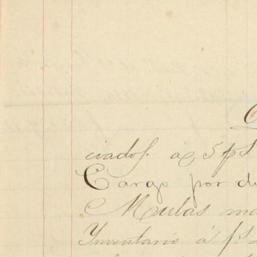 C
ciados á 5 ps
Cargo por di
Mulas ma
Inventario á ps